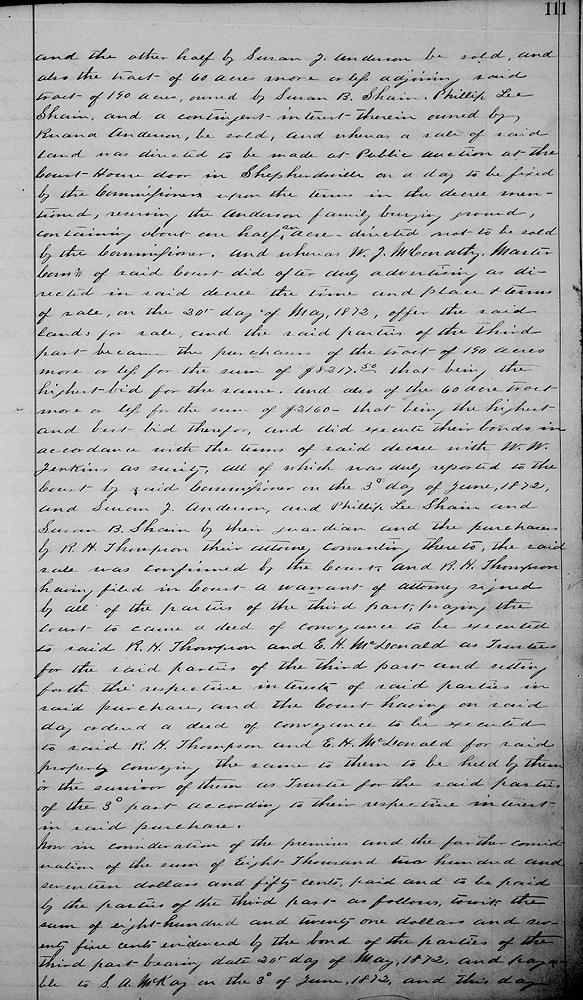 111
and the other half by Susan J. Anderson be sold, and
also the tract of 60 acres more or less adjoining said
tract of 190 acres, owned by Susan B. Shain, Phillip Lee
Shain, and a contingent interest therein owned by
Anderson, be sold, and whereas a sale of said
Land was directed to be made at Public auction at the
Court House door in Shepherdsville on a day to be fixed
by the Commissioner upon the terms in the decree men-
tioned, reserving the Anderson family burying ground,
containing about one half an acre directed not to be sold
by the Commissioner. And whereas W. J. McConathy, Master
Comr of said Court did after duly advertising as di-
rected in said decree the time and place & terms
of sale, on the 20th day of May, 1872, offer the said
lands for sale, and the said parties of the third
part became the purchasers of the tract of 190 acres
more or less for the sum of $8217.50 that being the
highest bid for the same. And also of the 60 acre tract
more or less for the sum of $2160- that being the highest
and best bid therefor, and did execute their bonds in
accordance with the terms of said decree with W. W.
Jenkins as surity, all of which was duly reported to the
Court by said Commissioner on the 3d day of June, 1872,
and Susan J. Anderson, and Phillip Lee Shain and
Susan B. Shain by their guardian and the purchasers
by R. H. Thompson their attorney consenting thereto, the said
sale was confirmed by the Court, and R. H. Thompson
having filed in Court a warrant of attorney signed
by all of the parties of the third part, praying the
court to cause a deed of conveyance to be executed
to said R. H. Thompson and E. H. McDonald as Trustees
for the said parties of the third part and setting
forth the respective interests of said parties in
said purchase, and the Court having on said
day ordered a deed of conveyance to be executed
to said R. H. Thompson and E. H. McDonald for said
property conveying the same to them to be held by them
or the survivor of them as Trustee for the said parties
of the 3d part according to their respective interest
in said purchase.
Now in consideration of the premises and the further consid-
eration of the sum of Eight Thousand two hundred and
seventeen dollars and fifty cents, paid and to be paid
by the parties of the third part as follows, towit: the
sum of eight hundred and twenty one dollars and sev-
enty five cents evidenced by the bond of the parties of the
third part bearing date 20th day of May, 1872, and paya-
ble to S. A. McKay on the 3d of June, 1872, and this day